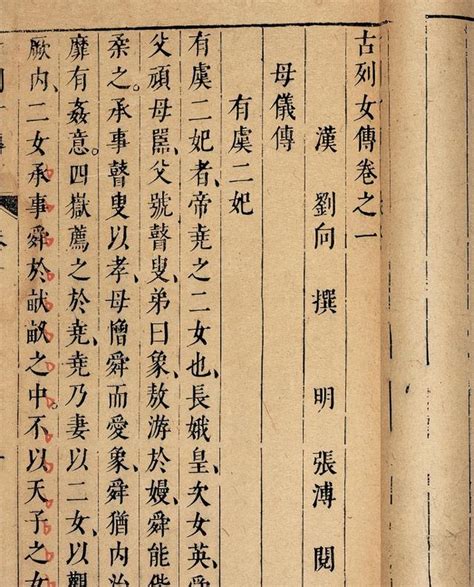 古列女傳卷之一
漢 劉向 撰 明 張溥 閱
母儀傳
有虞二妃
有虞二妃者、帝堯之二女也、長娥皇、次女英、
父頑母嚚、父號瞽叟、弟曰象、敖游於嫚、舜能偕
柔之。承事瞽叟以孝、母憎舜而愛象、舜猶内治
靡有姦意。四嶽薦之於堯、堯乃妻以二女、以觀
厥内、二女承事舜於畎畝之中。不以天子之女